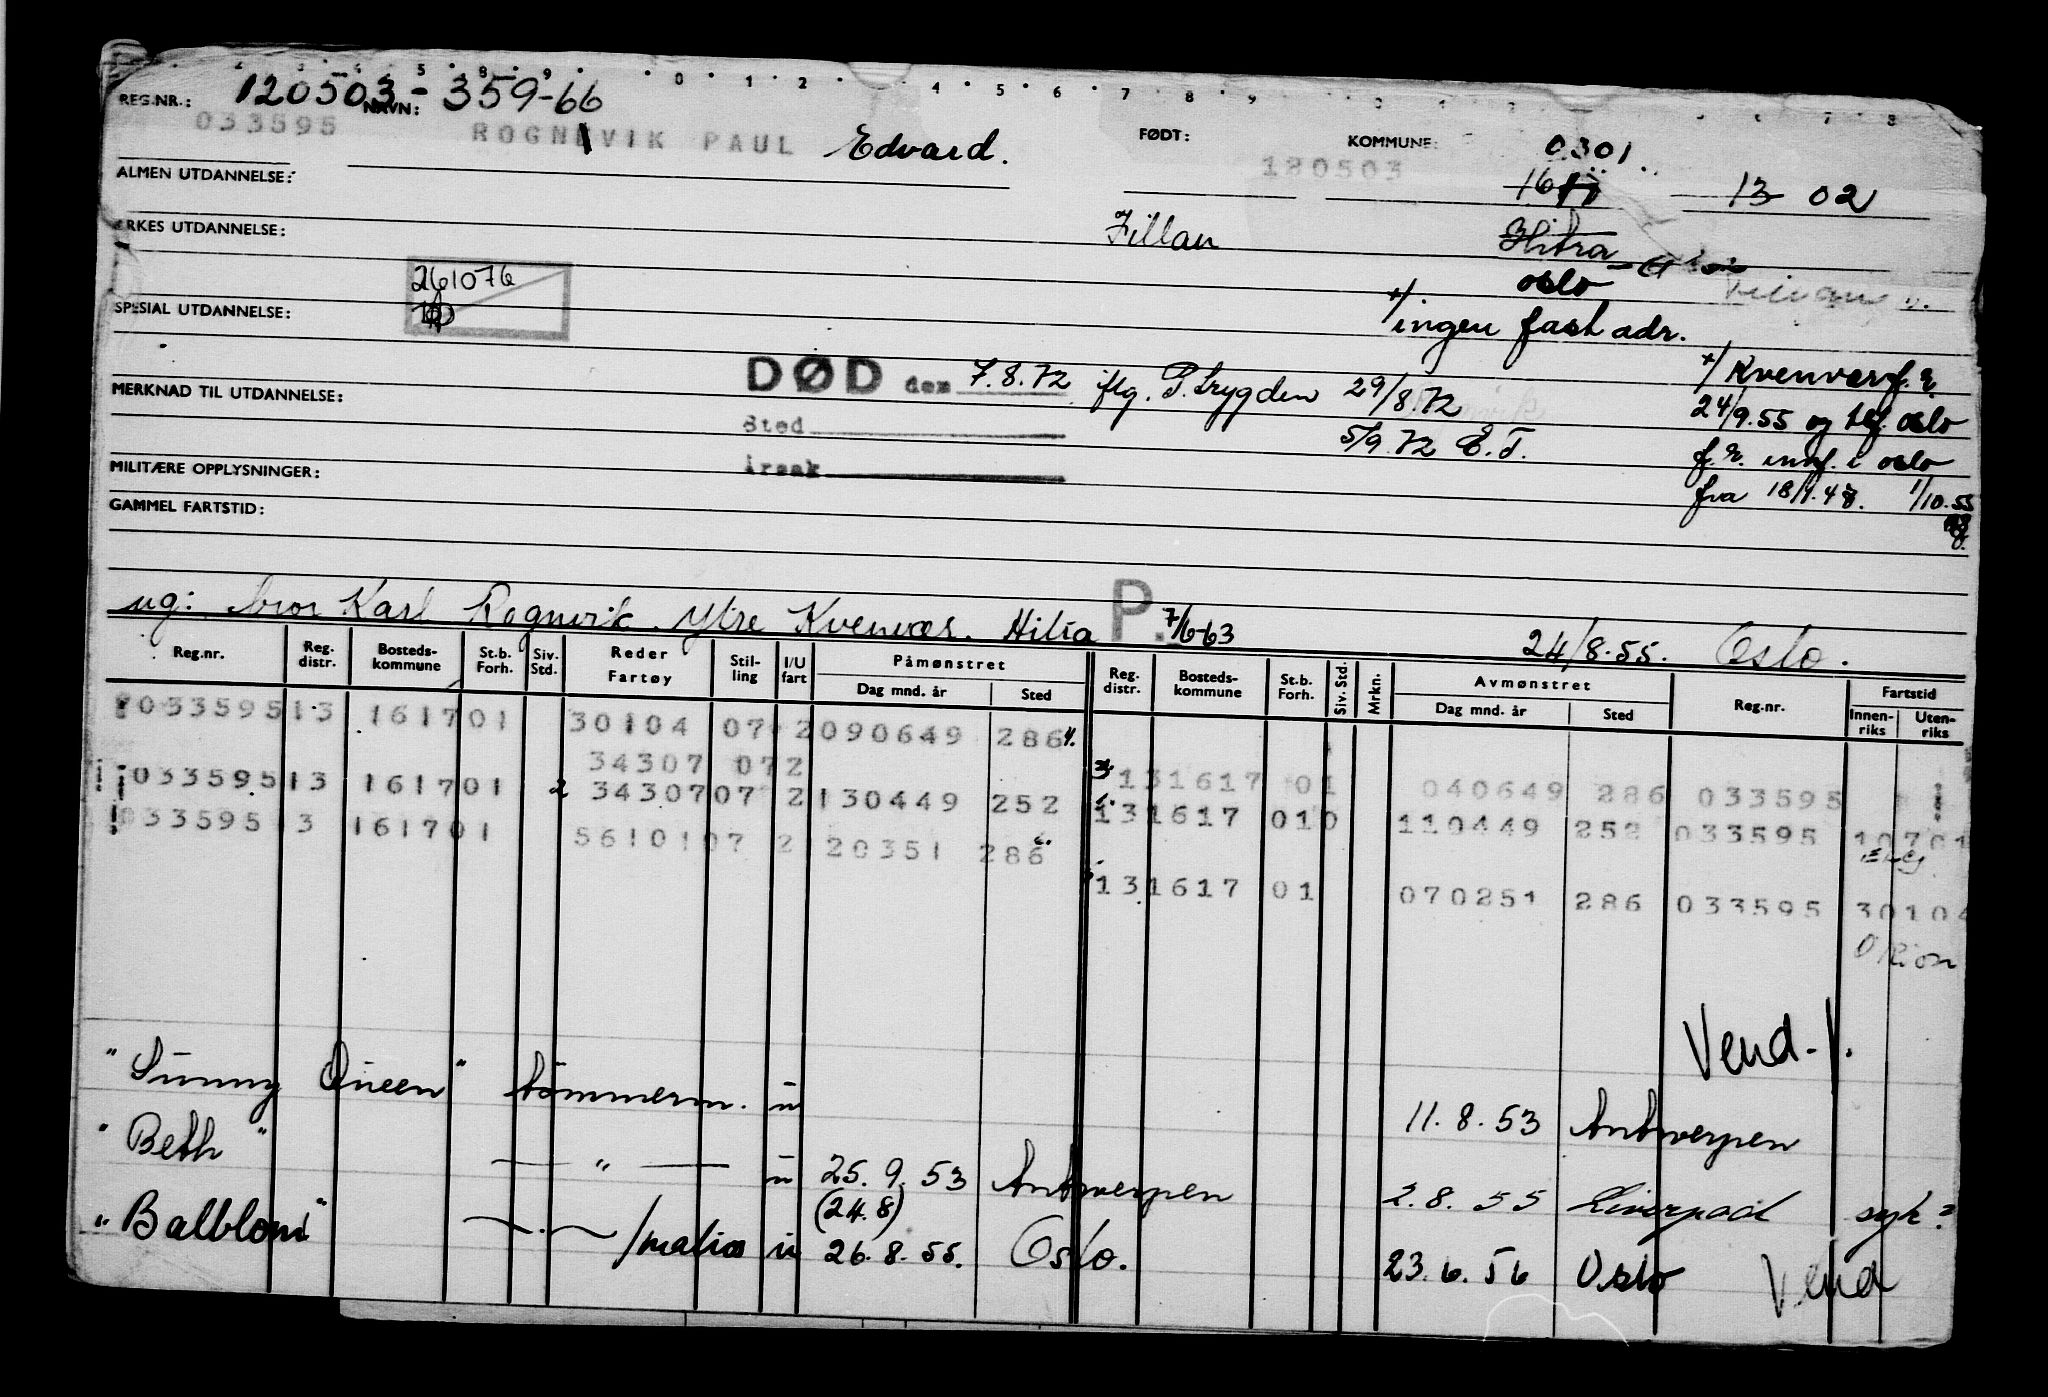 REG.NR.: 120503-359-66 NAVN:
033595 ROGNEVIK PAUL Edvard. FØDT: 180503 KOMMUNE: 0301.
ALMEN UTDANNELSE: 1617 13 02
YRKES UTDANNELSE: Fillan Hitra
261076 oslo
SPESIAL UTDANNELSE: +/ingen fast adr.
DØD den 7.8.72 iflg. P.trygden 29/8.72 +/Kvenvær f.r.
MERKNAD TIL UTDANNELSE: 24/9.55 og tlf. oslo
Sted 5/9.72 E.T. f.r. innf. i oslo
MILITÆRE OPPLYSNINGER: årsak fra 18/9.48. 1/10.55
GAMMEL FARTSTID:
ug: bror Karl Rognvik. Ytre Kvenvær. Hitra P. 7/6-63 24/8.55. Oslo.
Reg.nr. Reg. distr. Bosteds-kommune St.b. Forh. Siv. Std. Reder Fartøy Stil-ling I/U fart Påmønstret Dag mnd. år Sted Reg. distr. Bosteds-kommune St.b. Forh. Siv. Std. Mrkn. Avmønstret Dag mnd. år Sted Reg.nr. Fartstid Innen-riks Uten-riks
033595 13 1617 01 30104 07 2 090649 286
34307 07 2 13 1617 01 040649 286 033595
033595 13 1617 01 2 34307 07 2 130449 252 13 1617 01 0 110449 252 033595 10701
033595 13 1617 01 56101 07 2 120351 286
13 1617 01 070251 286 033595 30104
Orion
Vend.
"Sunny Queen" tømmerm. u 11.8.53 Antwerpen
"Beth" — " — u 25.9.53 Antwerpen 2.8.55 Liverpool syk?
(24.8)
"Balblom" /matros u 26.8.55. Oslo. 23.6.56 Oslo Vend